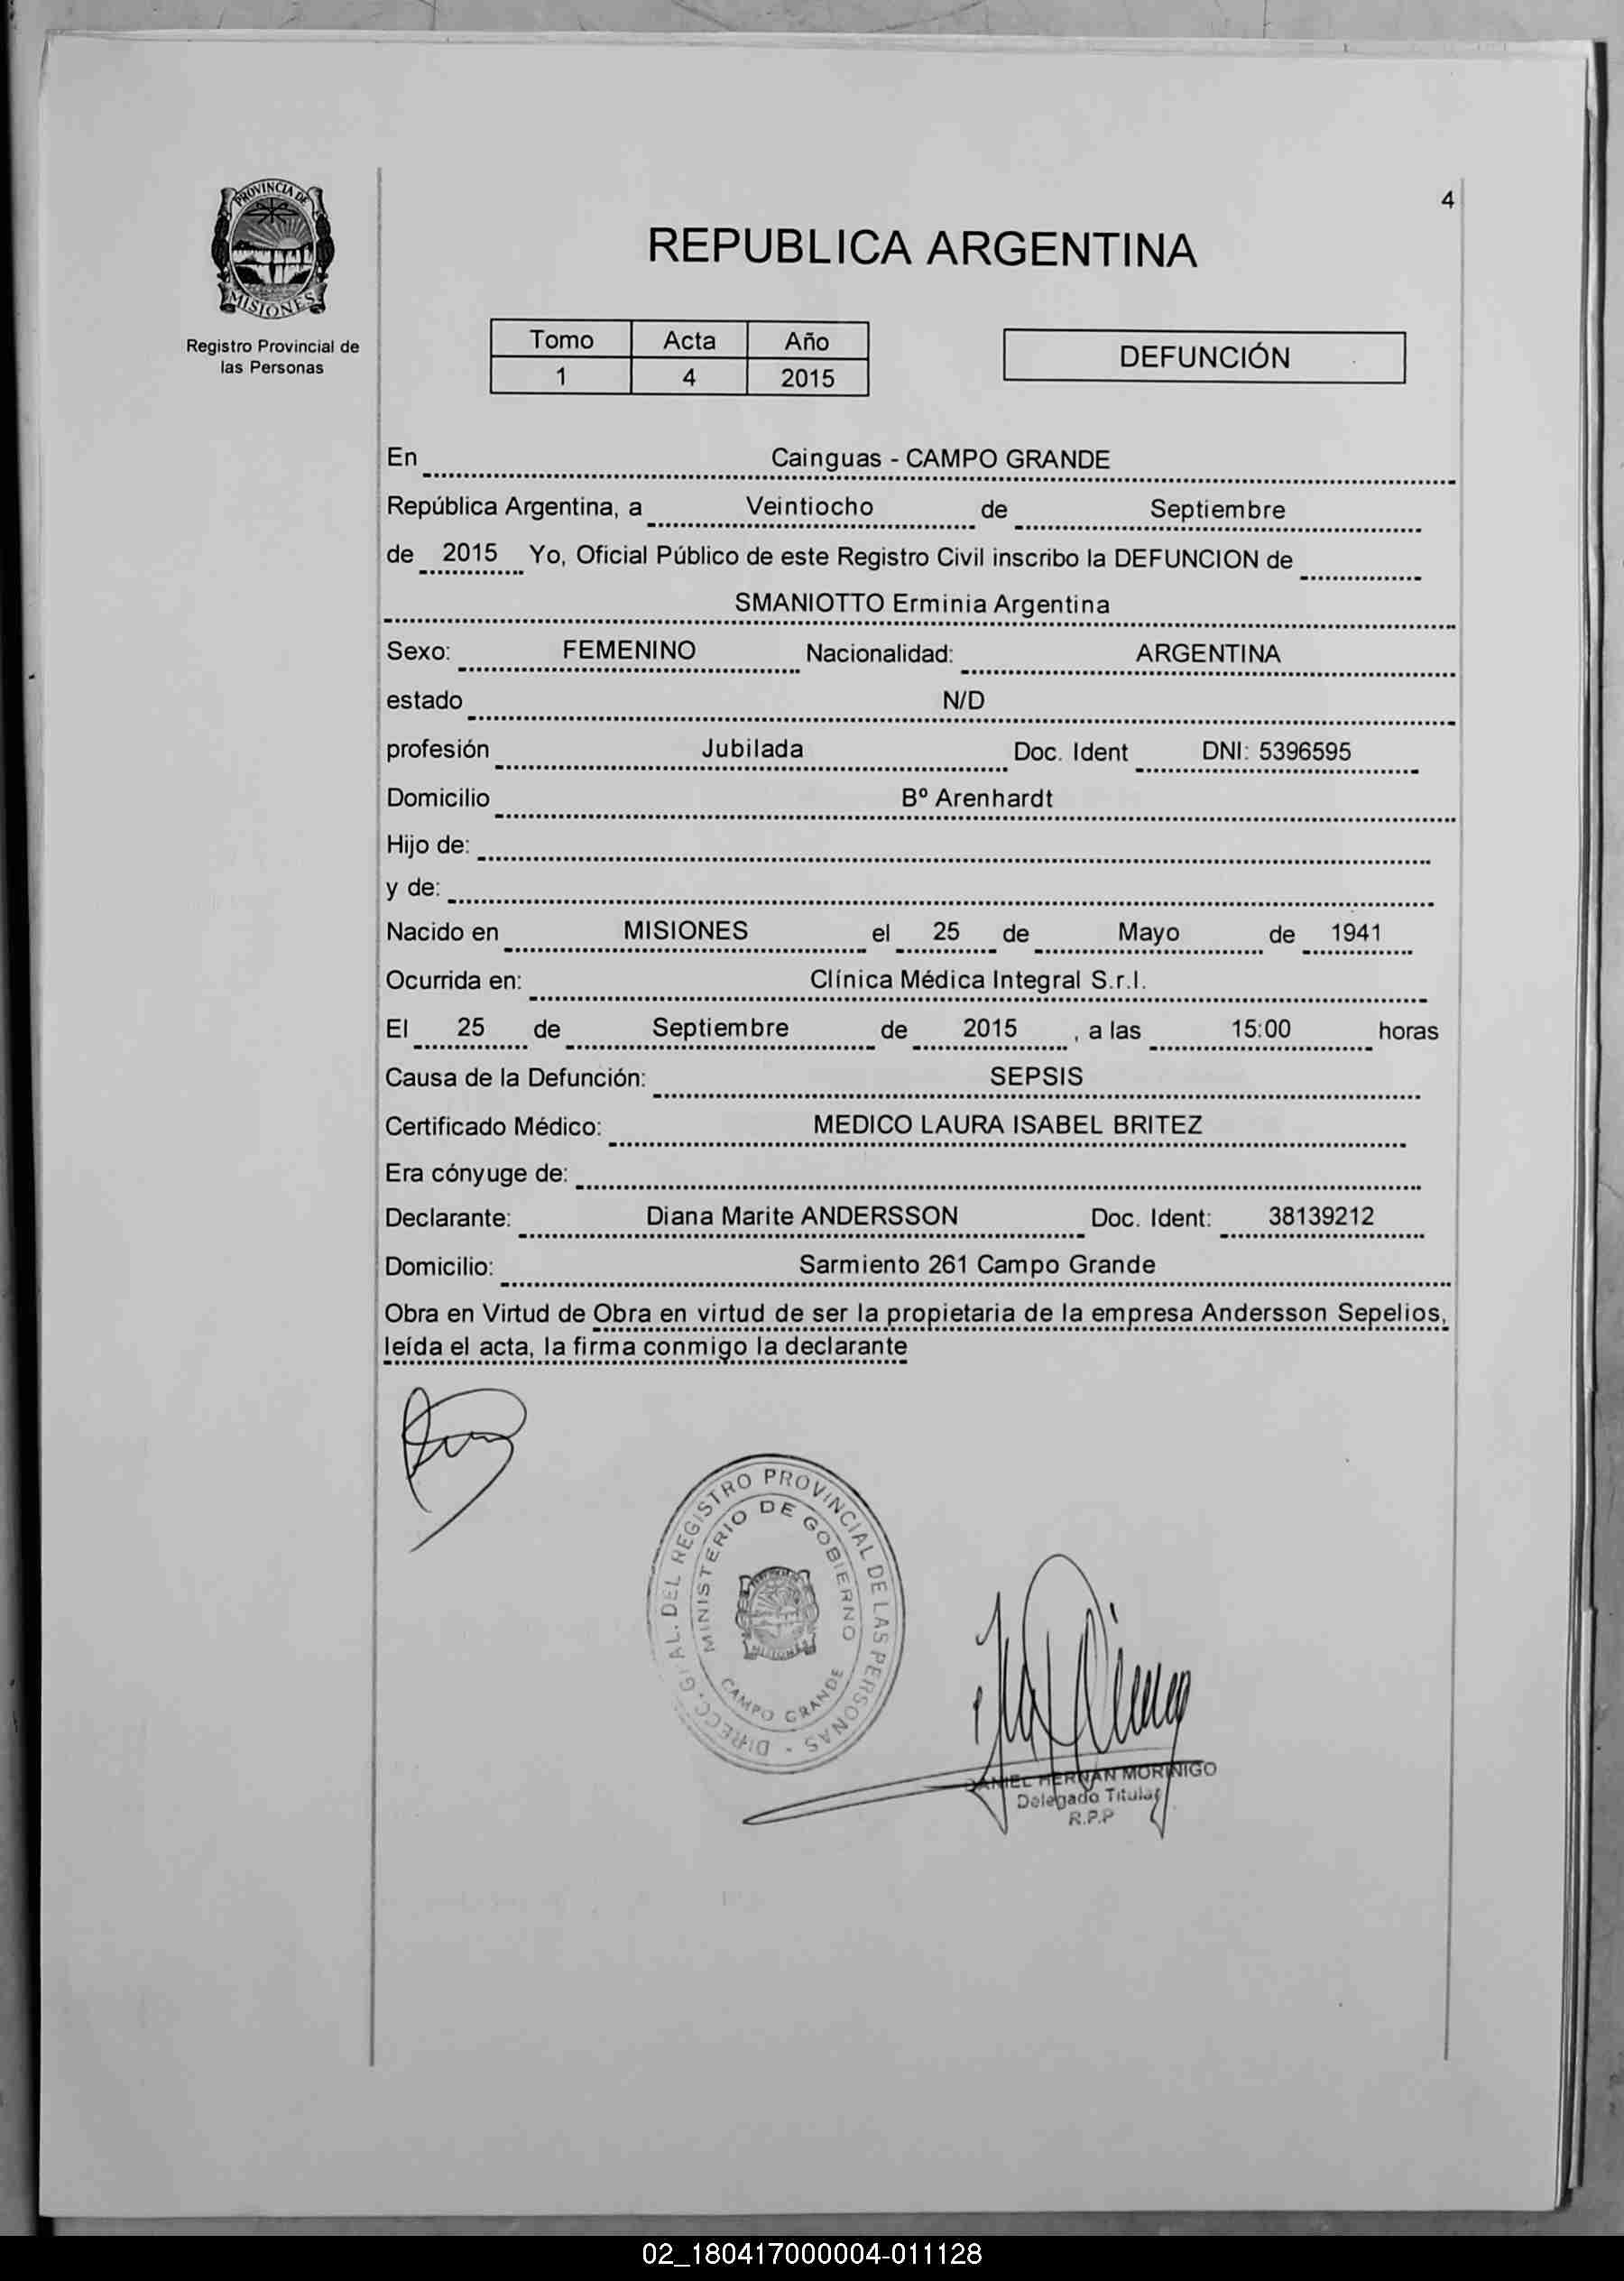 4
PROVINCIA DE
MISIONES
Registro Provincial de
las Personas
REPUBLICA ARGENTINA
Tomo Acta Año
1 4 2015
DEFUNCIÓN
En Cainguas - CAMPO GRANDE
República Argentina, a Veintiocho de Septiembre
de 2015 Yo, Oficial Público de este Registro Civil inscribo la DEFUNCION de
SMANIOTTO Erminia Argentina
Sexo: FEMENINO Nacionalidad: ARGENTINA
estado N/D
profesión Jubilada Doc. Ident DNI: 5396595
Domicilio Bº Arenhardt
Hijo de:
y de:
Nacido en MISIONES el 25 de Mayo de 1941
Ocurrida en: Clínica Médica Integral S.r.l.
El 25 de Septiembre de 2015 , a las 15:00 horas
Causa de la Defunción: SEPSIS
Certificado Médico: MEDICO LAURA ISABEL BRITEZ
Era cónyuge de:
Declarante: Diana Marite ANDERSSON Doc. Ident: 38139212
Domicilio: Sarmiento 261 Campo Grande
Obra en Virtud de Obra en virtud de ser la propietaria de la empresa Andersson Sepelios,
leída el acta, la firma conmigo la declarante
DIRECC. GRAL. DEL REGISTRO PROVINCIAL DE LAS PERSONAS -
MINISTERIO DE GOBIERNO
MISIONES
CAMPO GRANDE
DANIEL HERNAN MORINIGO
Delegado Titular
R.P.P
02_180417000004-011128